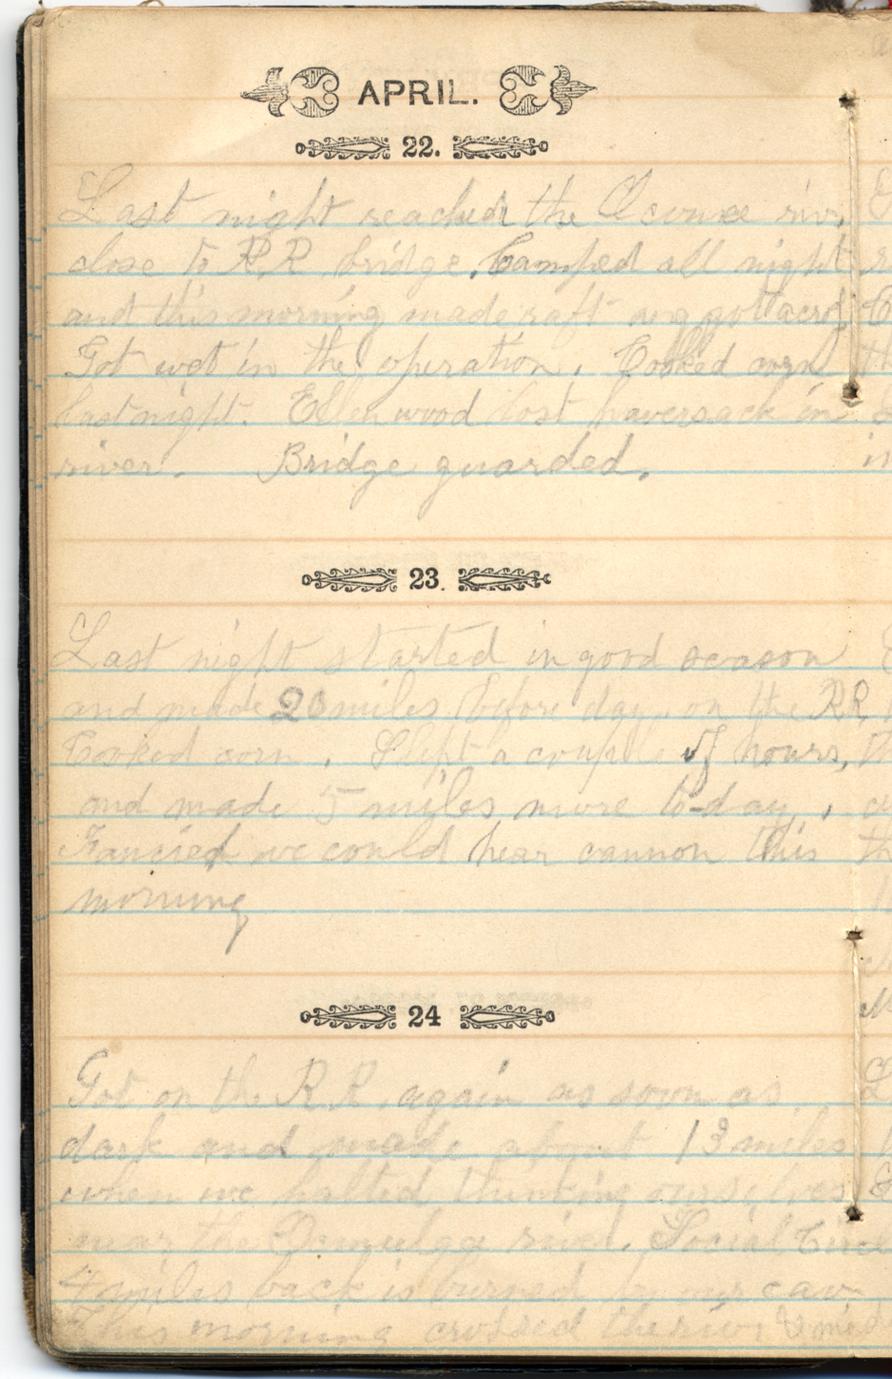 APRIL.
22.
Last night reached the Oconee riv.
close to RR bridge. Camped all night
and this morning made raft and got acros
Got wet in the operation. Cooked corn
last night. Ellenwood lost haversack in
river. Bridge guarded.
23.
Last night started in good season
and made 20 miles before day, on the RR
Cooked corn. Slept a couple of hours,
and made 5 miles more to-day.
Fancied we could hear cannon this
morning
24
Got on the R.R. again as soon as
dark and made about 13 miles
when we halted thinking ourselves
near the Ocmulgee river. Social Circle
4 miles back is burned by our cav.
This morning crossed the river 2 miles